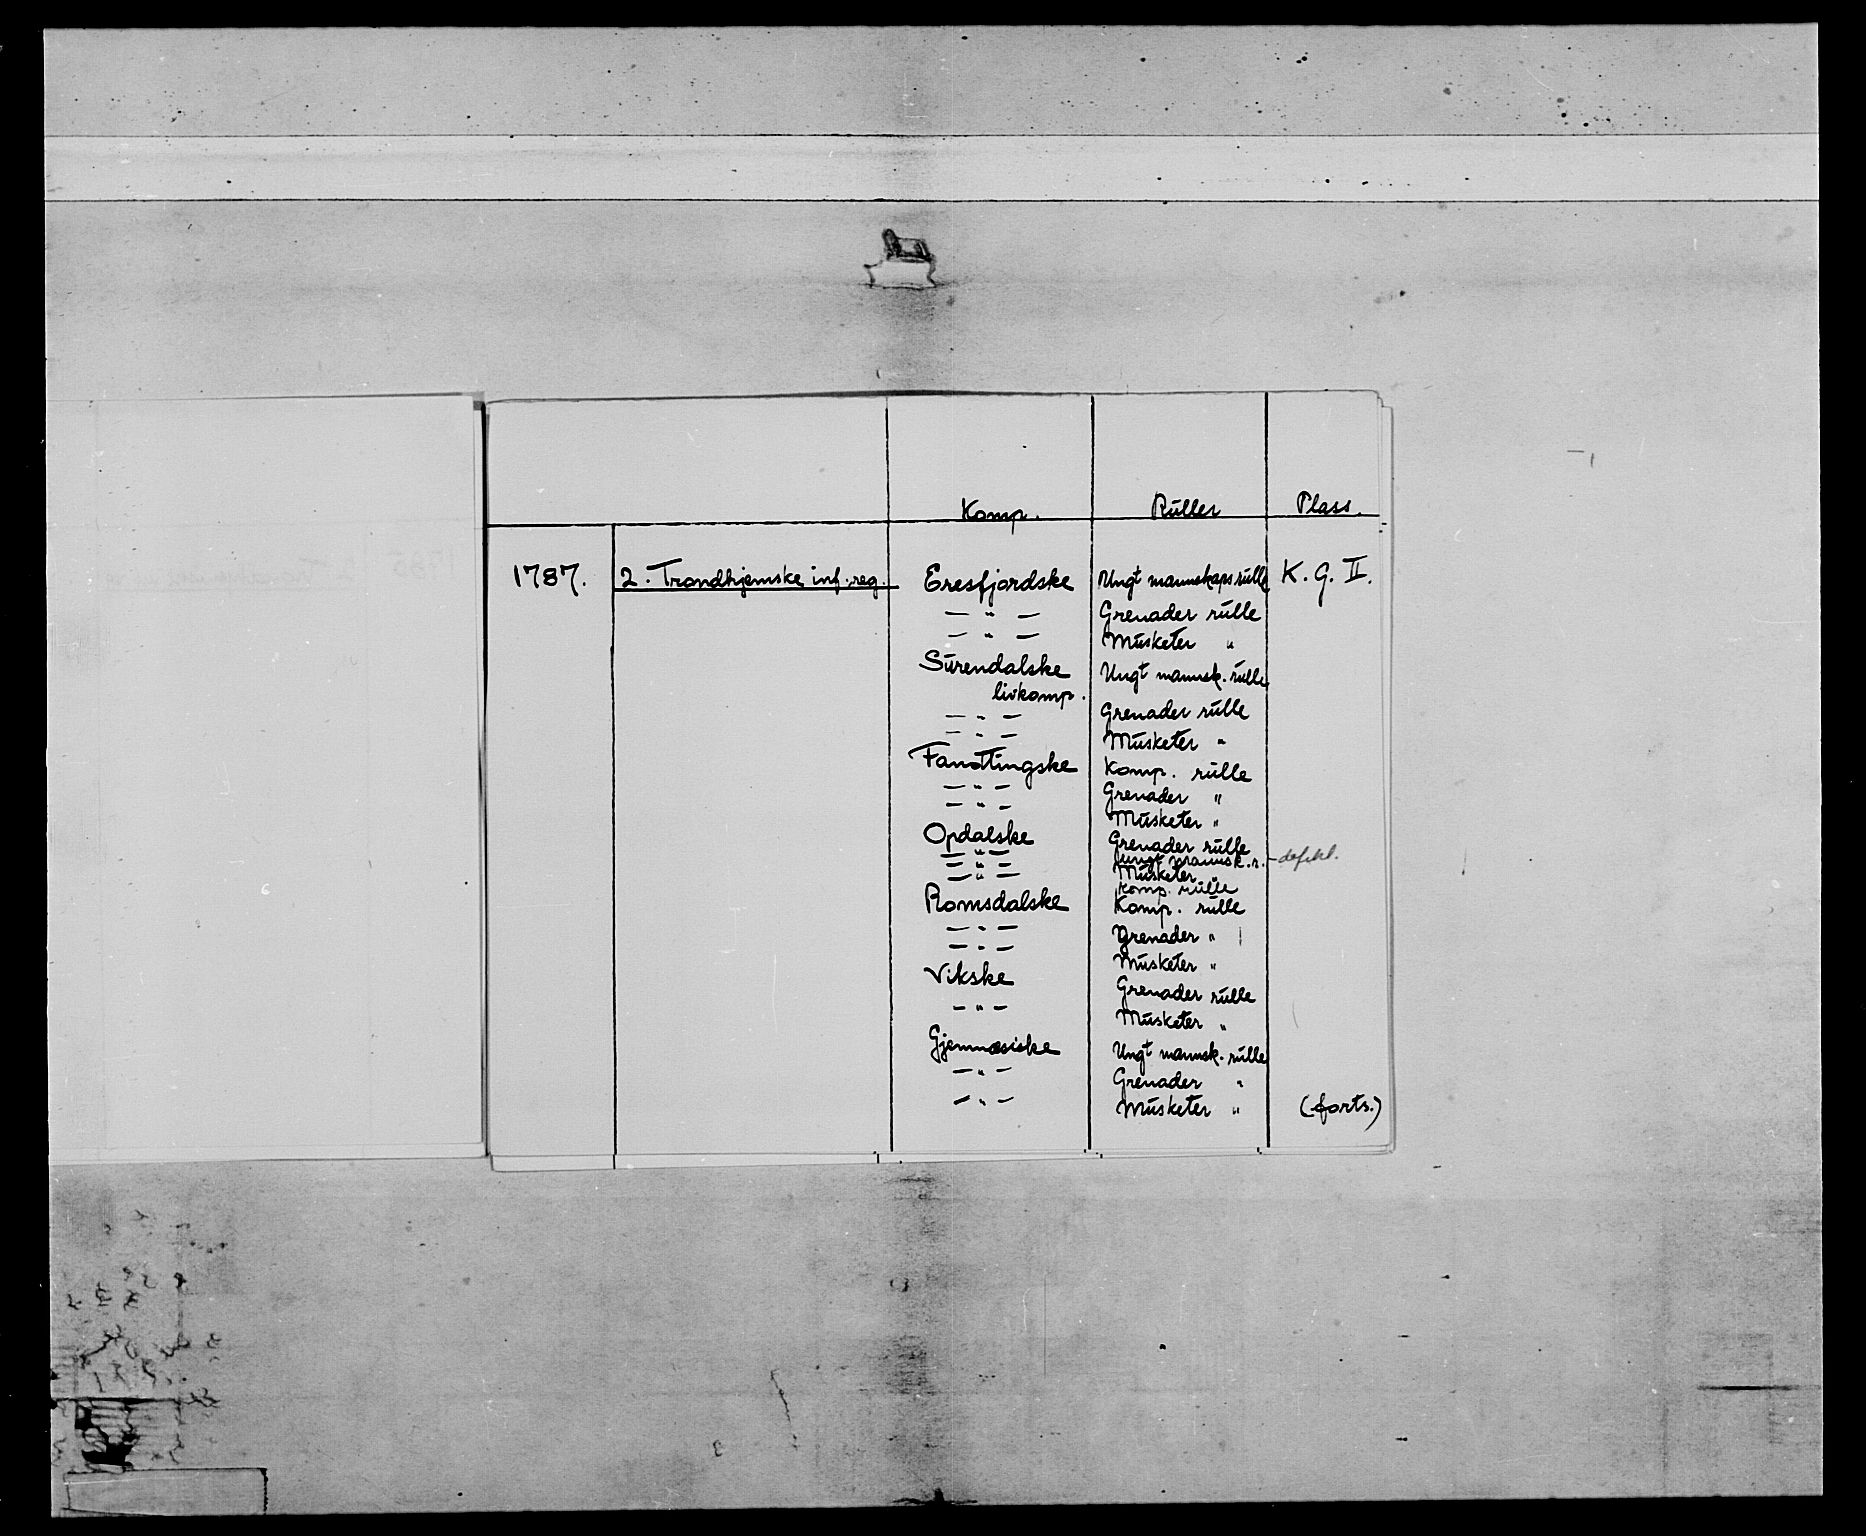 Komp. Rúller Plass.
1787. 2. Trondhjemske inf. reg. Eresfjordske Ungt mannskaps rúlle K. G. II.
— " — Grenader rúlle
— " — Músketer "
Súrendalske Ungt mannsk. rúlle
livkomp.
— " — Grenader rúlle
— " — Músketer "
Komp. rúlle
— " — Grenader "
— " — Músketer "
Opdalske Grenader rúlle
— " — mannsk. r. — defekt.
— " — Músketer "
— " — Komp. rúlle
Romsdalske Komp. rúlle
— " — Grenader "
— " — Músketer "
Vikske Grenader rúlle
— " — Músketer "
Gjemnæsiske Ungt mannsk. rúlle
— " — Grenader "
— " — Músketer " (forts.)